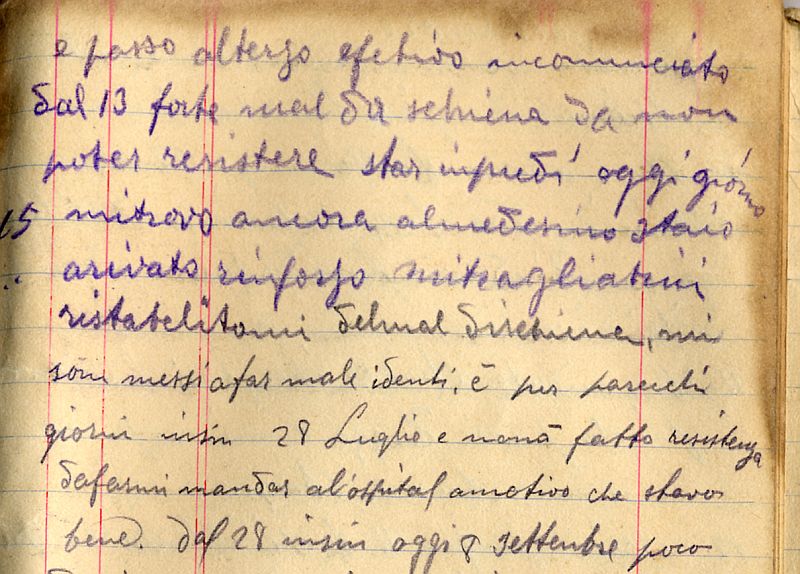 e passo alterzo efetivo incominciato
dal 13 forte mal da schiena da non
poter resistere star inpiedi oggi giorno
15 mitrovo ancora almedesimo staio
.. arivato rinforzo mitragliatrici
ristabelitomi delmal dischiena, mi
som messi afar male identi, é per parechi
giorni insin 28 Luglio e non à fatto resistenza
dafarmi mandar al'ospital amotivo che stavo
bene. dal 28 insin oggi 8 settenbre poco